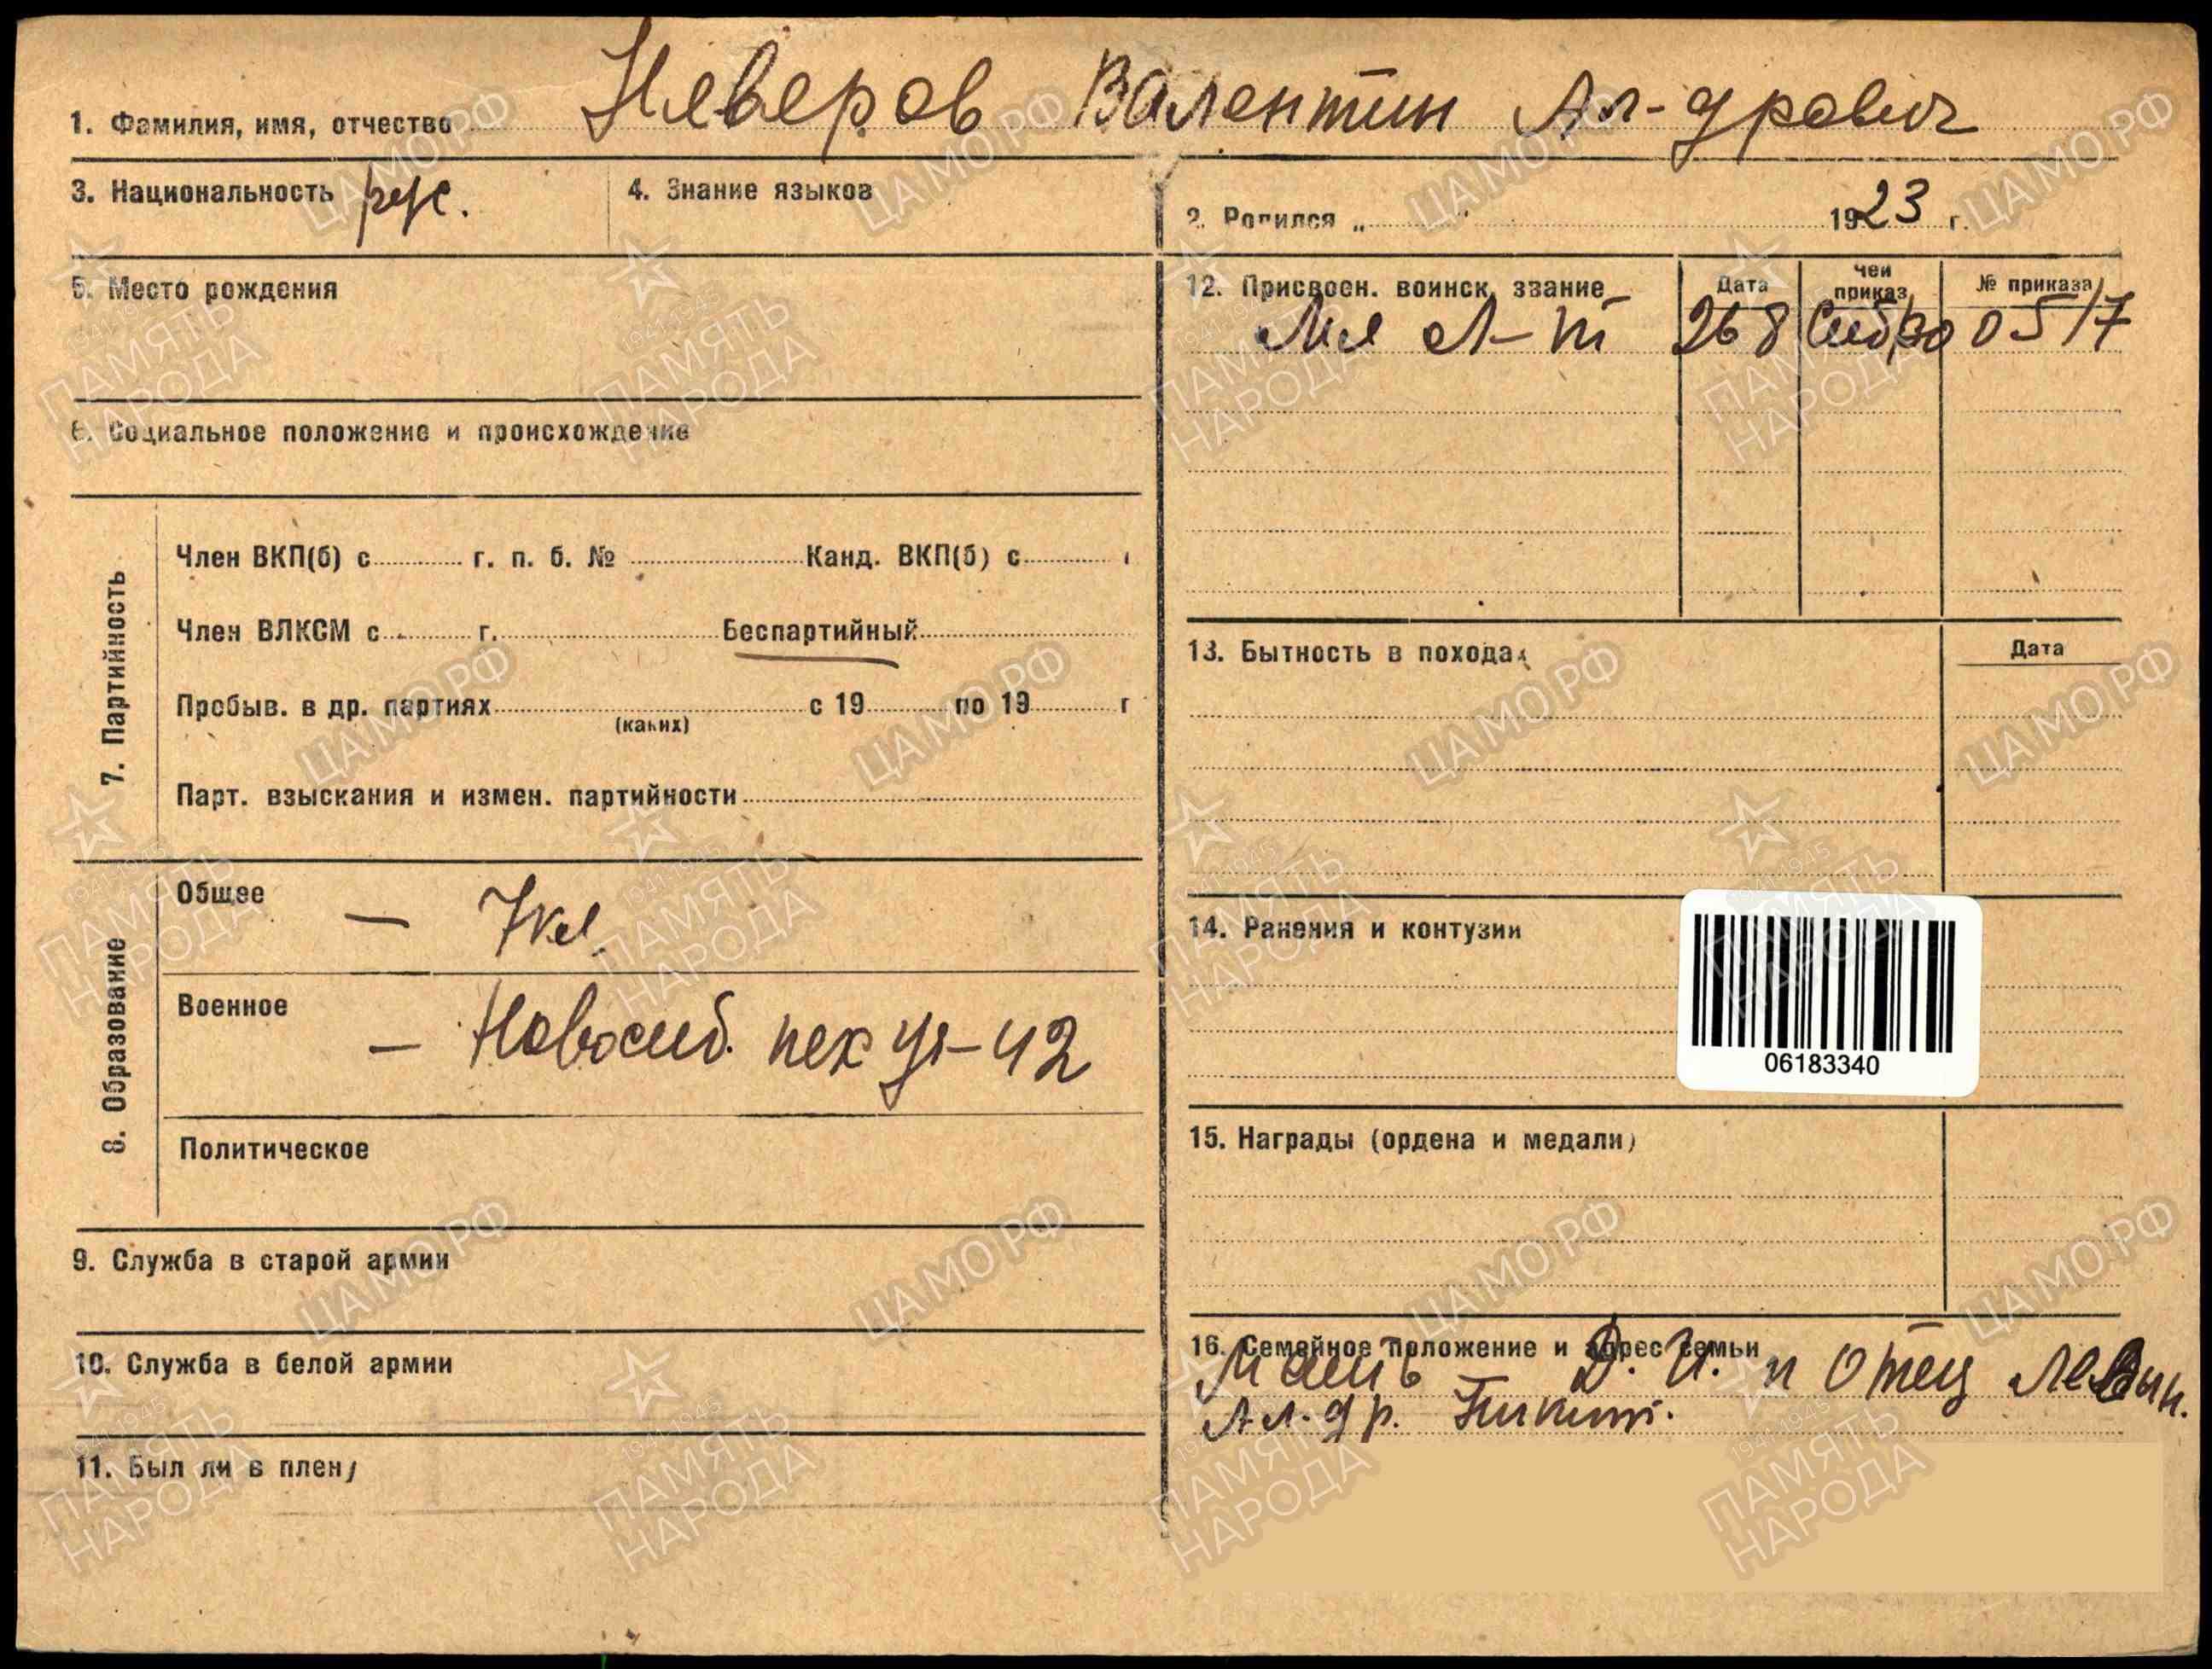 1. Фамилия, имя, отчество Неверов Валентин Ал-дрович
3. Национальность рус.
4. Знание языков
2. Родился „ " 1923 г.
5. Место рождения
6. Социальное положение и происхождение
7. Партийность
Член ВКП(б) с г. п. б. № Канд. ВКП(б) с
Член ВЛКСМ с г. Беспартийный
Пробыв. в др. партиях с 19 по 19 г
(каких)
Парт. взыскания и измен. партийности
8. Образование
Общее — 7 кл.
Военное — Новосиб. пех уч-42
Политическое
9. Служба в старой армии
10. Служба в белой армии
11. Был ли в плену
12. Присвоен. воинск. звание Дата Чей приказ № приказа
Мл Л-т 26 8 СибВО 05/7
13. Бытность в походах Дата
14. Ранения и контузии
06183340
15. Награды (ордена и медали)
16. Семейное положение и адрес семьи
Мать Д. И. и отец
Ал-др. Никит.
ЦАМО.РФ
1941-1945
ПАМЯТЬ
НАРОДА